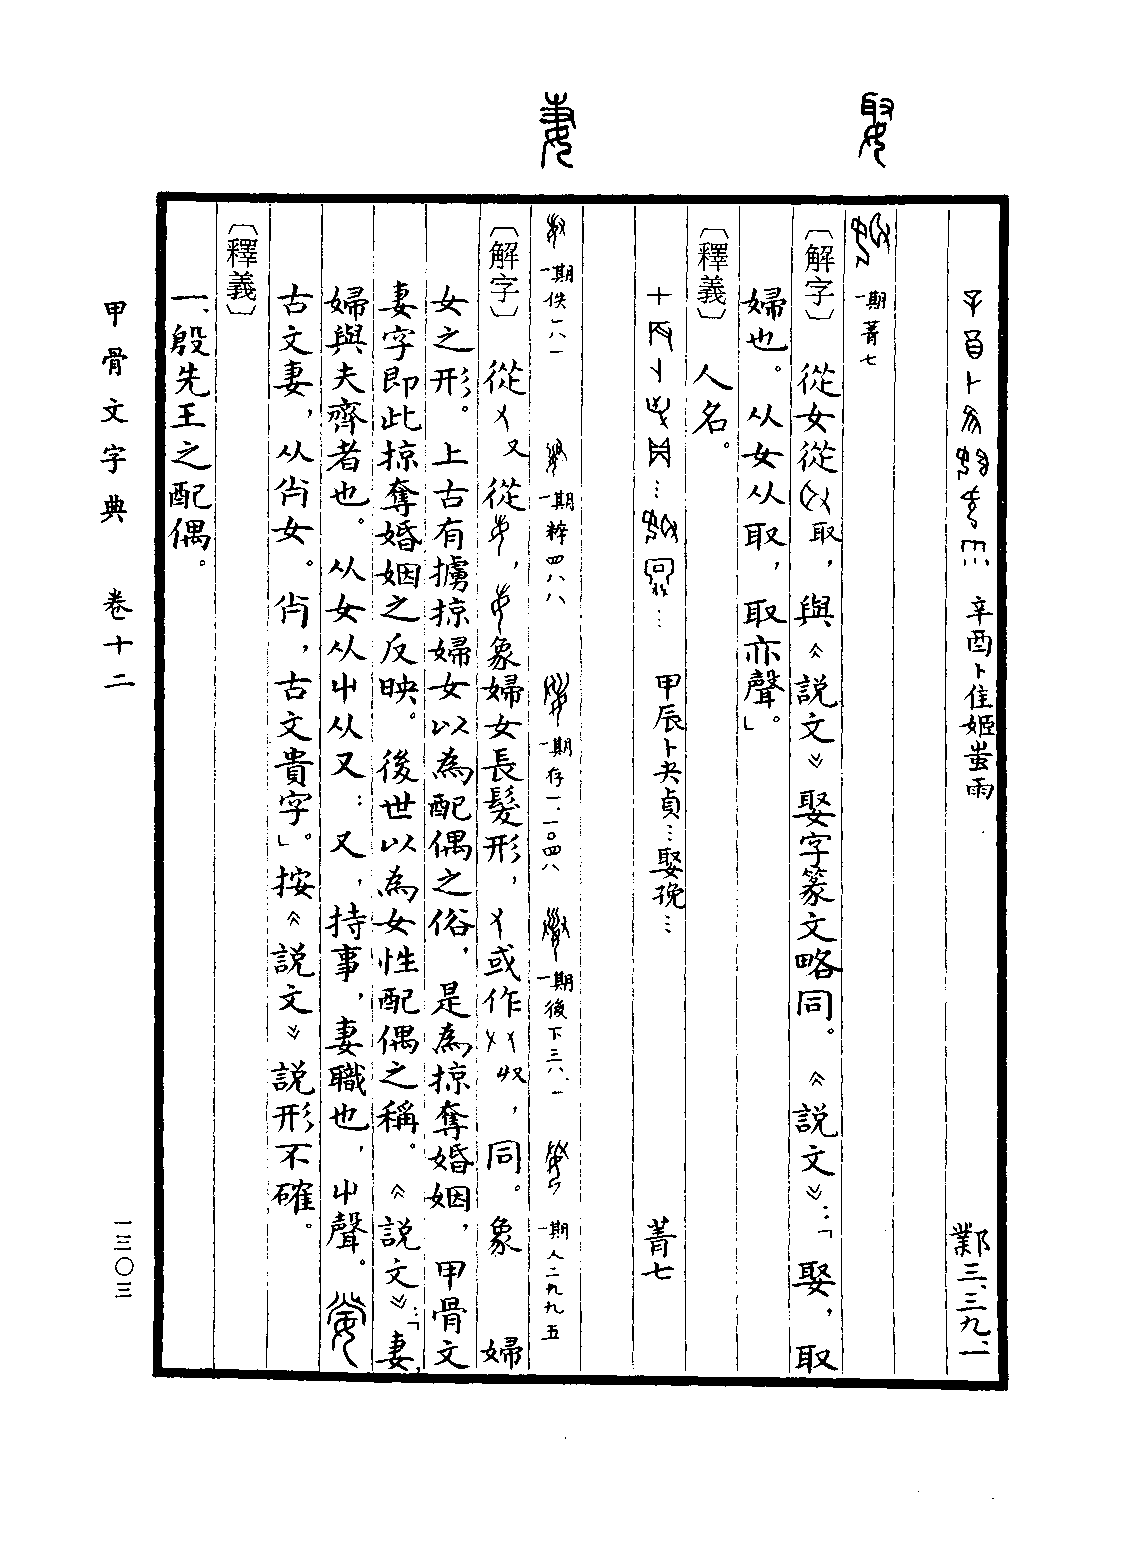 娶
妻
辛酉卜隹姬蚩雨　鄴三、三九、一
一期菁七
〔解字〕　從女從取，與《説文》娶字篆文略同。《説文》：「娶，取
婦也。从女从取，取亦聲」
〔釋義〕　人名。
甲辰卜夬貞…娶娩…　菁七
一期佚一八一　一期粹四八八　一期存一·一〇四八　一期後下三八·一　一期人二九九五
〔解字〕　從又從，象婦女長髮形，或作収，同。象　婦
女之形。上古有擄掠婦女以為配偶之俗，是為掠奪婚姻，甲骨文
妻字即此掠奪婚姻之反映。後世以為女性配偶之稱。《説文》：「妻，
婦與夫齊者也。从女从屮从又：又，持事，妻職也，屮聲。
古文妻，从𡴋女。𡴋，古文貴字」。按《説文》説形不確。
〔釋義〕
一、殷先王之配偶。
甲骨文字典　卷十二　一三〇三